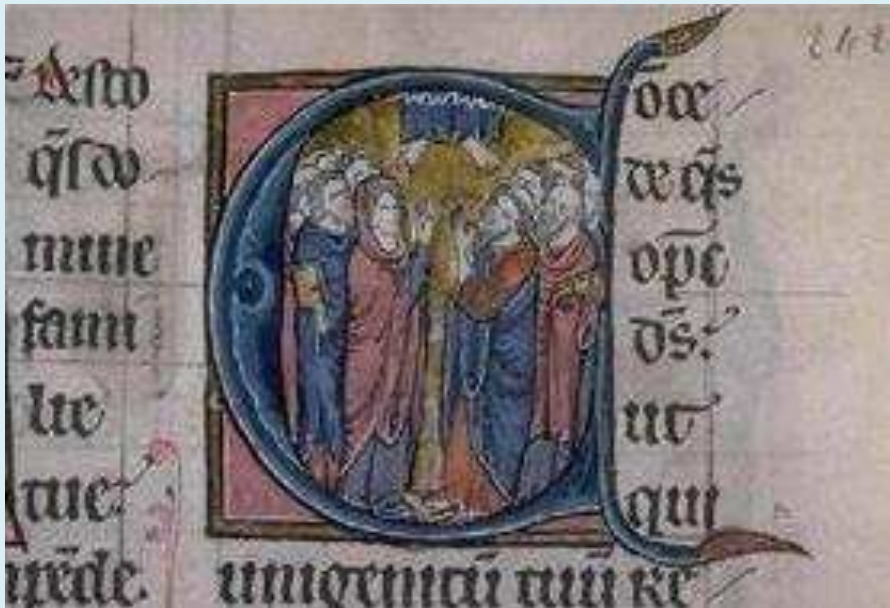 desto
q̄s do
mine
fami
lie
tue
Cōce
de q̄s
op̄c
d̄s:
ut
qui
unigenitū tuū re